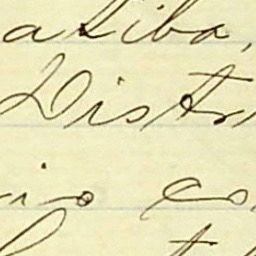 atiba,
Distr
io co